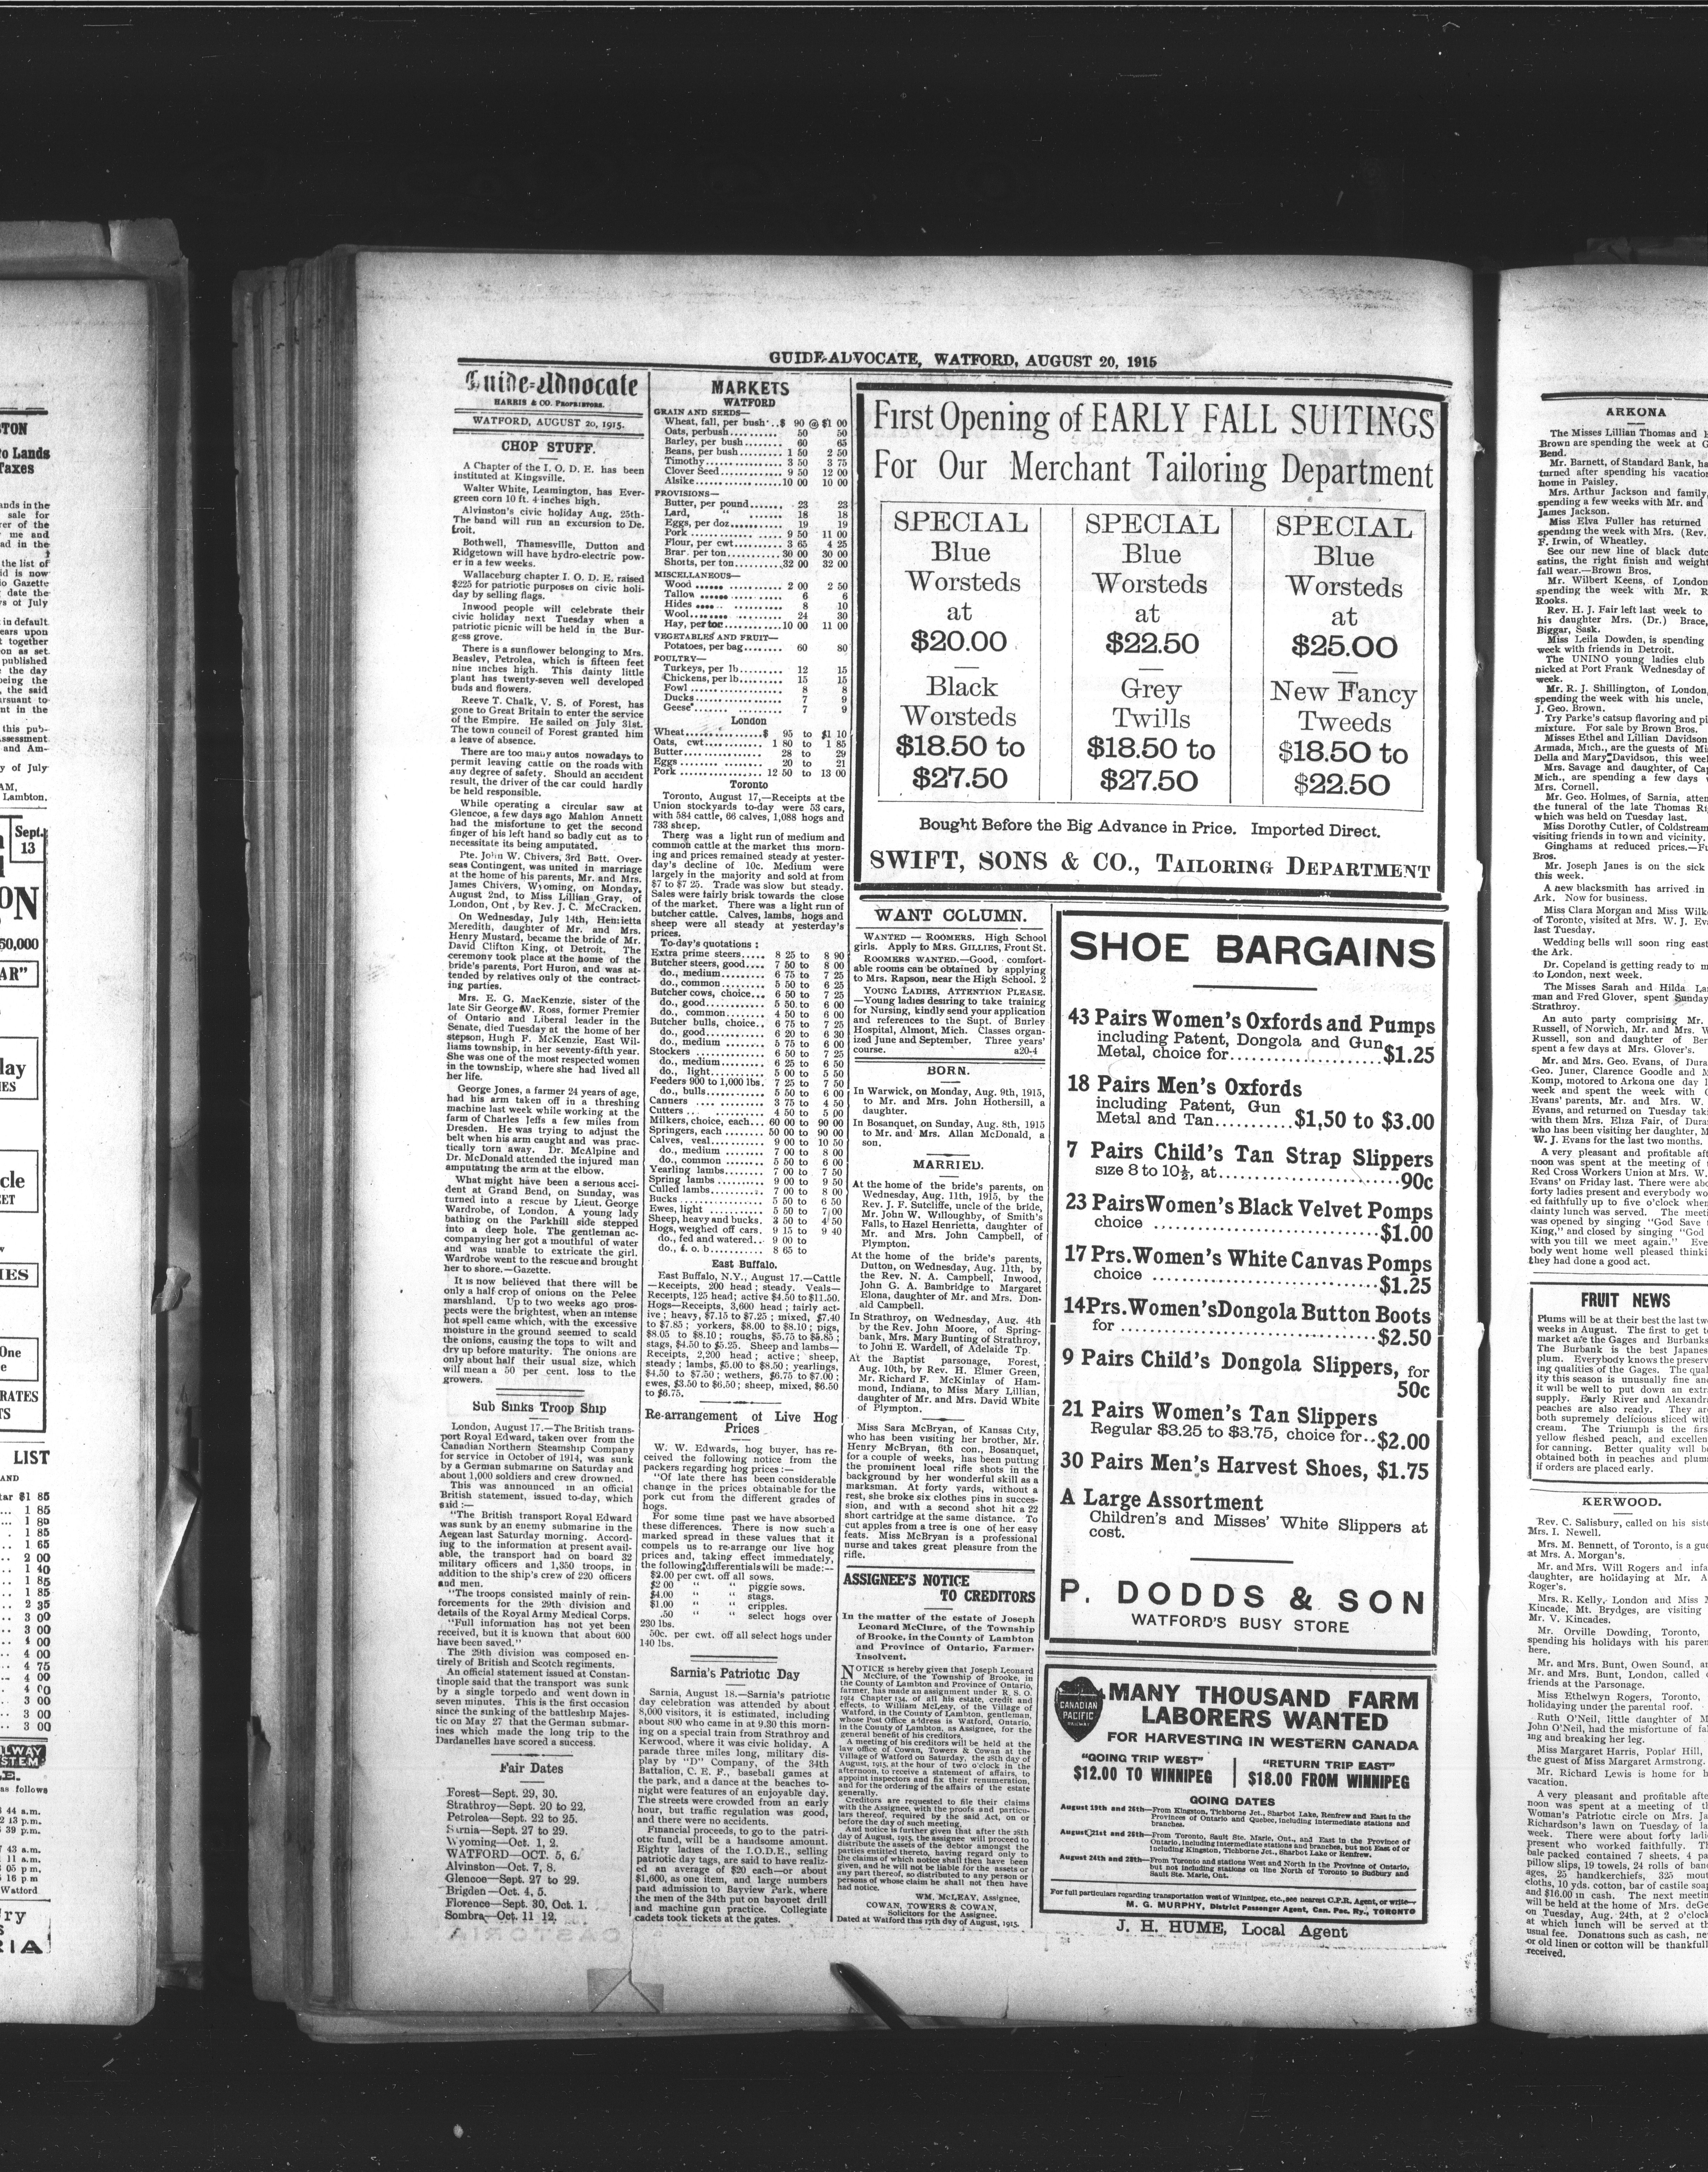 GUIDE-ADVOCATE, WATFORD, AUGUST 20, 1915
Guide-Advocate
HARRIS & CO. PROPRIETORS.
WATFORD, AUGUST 20, 1915.
CHOP STUFF.
A Chapter of the I. O. D. E. has been
instituted at Kingsville.
Walter White, Leamington, has Ever-
green corn 10 ft. 4 inches high.
Alvinston's civic holiday Aug. 25th-
The band will run an excursion to De-
troit.
Bothwell, Thamesville, Dutton and
Ridgetown will have hydro-electric pow-
er in a few weeks.
Wallaceburg chapter I. O. D. E. raised
$225 for patriotic purposes on civic holi-
day by selling flags.
Inwood people will celebrate their
civic holiday next Tuesday when a
patriotic picnic will be held in the Bur-
gess grove.
There is a sunflower belonging to Mrs.
Beasley, Petrolea, which is fifteen feet
nine inches high. This dainty little
plant has twenty-seven well developed
buds and flowers.
Reeve T. Chalk, V. S. of Forest, has
gone to Great Britain to enter the service
of the Empire. He sailed on July 31st.
The town council of Forest granted him
a leave of absence.
There are too many autos nowadays to
permit leaving cattle on the roads with
any degree of safety. Should an accident
result, the driver of the car could hardly
be held responsible.
While operating a circular saw at
Glencoe, a few days ago Mahlon Annett
had the misfortune to get the second
finger of his left hand so badly cut as to
necessitate its being amputated.
Pte. John W. Chivers, 3rd Batt. Over-
seas Contingent, was united in marriage
at the home of his parents, Mr. and Mrs.
James Chivers, Wyoming, on Monday,
August 2nd, to Miss Lillian Gray, of
London, Ont, by Rev. J. C. McCracken.
On Wednesday, July 14th, Henrietta
Meredith, daughter of Mr. and Mrs.
Henry Mustard, became the bride of Mr.
David Clifton King, of Detroit. The
ceremony took place at the home of the
bride's parents, Port Huron, and was at-
tended by relatives only of the contract-
ing parties.
Mrs. E. G. MacKenzie, sister of the
late Sir George W. Ross, former Premier
of Ontario and Liberal leader in the
Senate, died Tuesday at the home of her
stepson, Hugh F. McKenzie, East Wil-
liams township, in her seventy-fifth year.
She was one of the most respected women
in the township, where she had lived all
her life.
George Jones, a farmer 24 years of age,
had his arm taken off in a threshing
machine last week while working at the
farm of Charles Jeffs a few miles from
Dresden. He was trying to adjust the
belt when his arm caught and was prac-
tically torn away. Dr. McAlpine and
Dr. McDonald attended the injured man
amputating the arm at the elbow.
What might have been a serious acci-
dent at Grand Bend, on Sunday, was
turned into a rescue by Lieut. George
Wardrobe, of London. A young lady
bathing on the Parkhill side stepped
into a deep hole. The gentleman ac-
companying her got a mouthful of water
and was unable to extricate the girl.
Wardrobe went to the rescue and brought
her to shore.—Gazette.
It is now believed that there will be
only a half crop of onions on the Pelee
marshland. Up to two weeks ago pros-
pects were the brightest, when an intense
hot spell came which, with the excessive
moisture in the ground seemed to scald
the onions, causing the tops to wilt and
dry up before maturity. The onions are
only about half their usual size, which
will mean a 50 per cent. loss to the
growers.
Sub Sinks Troop Ship
London, August 17.—The British trans-
port Royal Edward, taken over from the
Canadian Northern Steamship Company
for service in October of 1914, was sunk
by a German submarine on Saturday and
about 1,000 soldiers and crew drowned.
This was announced in an official
British statement, issued to-day, which
said :—
"The British transport Royal Edward
was sunk by an enemy submarine in the
Aegean last Saturday morning. Accord-
ing to the information at present avail-
able, the transport had on board 32
military officers and 1,350 troops, in
addition to the ship's crew of 220 officers
and men.
"The troops consisted mainly of rein-
forcements for the 29th division and
details of the Royal Army Medical Corps.
"Full information has not yet been
received, but it is known that about 600
have been saved."
The 29th division was composed en-
tirely of British and Scotch regiments.
An official statement issued at Constan-
tinople said that the transport was sunk
by a single torpedo and went down in
seven minutes. This is the first occasion
since the sinking of the battleship Majes-
tic on May 27 that the German submar-
ines which made the long trip to the
Dardanelles have scored a success.
Fair Dates
Forest—Sept. 29, 30.
Strathroy—Sept. 20 to 22.
Petrolea—Sept. 22 to 25.
Sarnia—Sept. 27 to 29.
Wyoming—Oct. 1, 2.
WATFORD—OCT. 5, 6.
Alvinston—Oct. 7, 8.
Glencoe—Sept. 27 to 29.
Brigden—Oct. 4, 5.
Florence—Sept. 30, Oct. 1.
Sombra—Oct. 11 12.
MARKETS
WATFORD
GRAIN AND SEEDS—
Wheat, fall, per bush..$ 90 @ $1 00
Oats, perbush.......... 50 50
Barley, per bush....... 60 65
Beans, per bush........ 1 50 2 50
Timothy............... 3 50 3 75
Clover Seed........... 9 50 12 00
Alsike................10 00 10 00
PROVISIONS—
Butter, per pound...... 23 23
Lard, " ...... 18 18
Eggs, per doz.......... 19 19
Pork .............. 9 50 11 00
Flour, per cwt........ 3 65 4 25
Bran, per ton..........30 00 30 00
Shorts, per ton........32 00 32 00
MISCELLANEOUS—
Wood ............ 2 00 2 50
Tallow ........... 6 6
Hides ............ 8 10
Wool.............. 24 30
Hay, per ton..........10 00 11 00
VEGETABLES AND FRUIT—
Potatoes, per bag....... 60 80
POULTRY—
Turkeys, per lb......... 12 15
Chickens, per lb........ 15 15
Fowl .................. 8 8
Ducks.................. 7 9
Geese.................. 7 9
London
Wheat..............$ 95 to $1 10
Oats, cwt........... 1 80 to 1 85
Butter............... 28 to 29
Eggs ................ 20 to 21
Pork ............... 12 50 to 13 00
Toronto
Toronto, August 17,—Receipts at the
Union stockyards to-day were 53 cars,
with 584 cattle, 66 calves, 1,088 hogs and
733 sheep.
There was a light run of medium and
common cattle at the market this morn-
ing and prices remained steady at yester-
day's decline of 10c. Medium were
largely in the majority and sold at from
$7 to $7 25. Trade was slow but steady.
Sales were fairly brisk towards the close
of the market. There was a light run of
butcher cattle. Calves, lambs, hogs and
sheep were all steady at yesterday's
prices.
To-day's quotations :
Extra prime steers.. 8 25 to 8 90
Butcher steers, good.... 7 50 to 8 00
do., medium......... 6 75 to 7 25
do., common........ 5 50 to 6 25
Butcher cows, choice... 6 50 to 7 25
do., good.......... 5 50 to 6 00
do., common....... 4 50 to 6 00
Butcher bulls, choice.. 6 75 to 7 25
do., good.......... 6 20 to 6 30
do., medium ....... 5 75 to 6 00
Stockers ............ 6 50 to 7 25
do., medium....... 6 25 to 6 50
do., light......... 5 00 to 5 50
Feeders 900 to 1,000 lbs. 7 25 to 7 50
do., bulls......... 5 50 to 6 00
Canners ............ 3 75 to 4 50
Cutters ............ 4 50 to 5 00
Milkers, choice, each... 60 00 to 90 00
Springers, each ........ 50 00 to 90 00
Calves, veal.......... 9 00 to 10 50
do., medium ....... 7 00 to 8 00
do., common ....... 5 50 to 6 00
Yearling lambs....... 7 00 to 7 50
Spring lambs ........ 9 00 to 9 50
Culled lambs......... 7 00 to 8 00
Bucks ............... 5 50 to 6 50
Ewes, light .......... 5 50 to 7 00
Sheep, heavy and bucks. 3 50 to 4 50
Hogs, weighed off cars. 9 15 to 9 40
do., fed and watered.. 9 00 to
do., f. o. b.......... 8 65 to
East Buffalo.
East Buffalo, N.Y., August 17.—Cattle
—Receipts, 200 head ; steady. Veals—
Receipts, 125 head; active $4.50 to $11.50.
Hogs—Receipts, 3,600 head ; fairly act-
ive ; heavy, $7.15 to $7.25 ; mixed, $7.40
to $7.85 ; yorkers, $8.00 to $8.10 ; pigs,
$8.05 to $8.10 ; roughs, $5.75 to $5.85 ;
stags, $4.50 to $5.25. Sheep and lambs—
Receipts, 2,200 head ; active ; sheep,
steady ; lambs, $5.00 to $8.50 ; yearlings,
$4.50 to $7.50 ; wethers, $6.75 to $7.00 ;
ewes, $3.50 to $6.50 ; sheep, mixed, $6.50
to $6.75.
Re-arrangement of Live Hog
Prices
W. W. Edwards, hog buyer, has re-
ceived the following notice from the
packers regarding hog prices :—
"Of late there has been considerable
change in the prices obtainable for the
pork cut from the different grades of
hogs.
For some time past we have absorbed
these differences. There is now such a
marked spread in these values that it
compels us to re-arrange our live hog
prices and, taking effect immediately,
the following differentials will be made:—
$2.00 per cwt. off all sows.
$2 00 " " piggie sows.
$4.00 " " stags.
$1.00 " " cripples.
.50 " " select hogs over
230 lbs.
50c. per cwt. off all select hogs under
140 lbs.
Sarnia's Patriotic Day
Sarnia, August 18.—Sarnia's patriotic
day celebration was attended by about
8,000 visitors, it is estimated, including
about 800 who came in at 9.30 this morn-
ing on a special train from Strathroy and
Kerwood, where it was civic holiday. A
parade three miles long, military dis-
play by "D" Company, of the 34th
Battalion, C. E. F., baseball games at
the park, and a dance at the beaches to-
night were features of an enjoyable day.
The streets were crowded from an early
hour, but traffic regulation was good,
and there were no accidents.
Financial proceeds, to go to the patri-
otic fund, will be a handsome amount.
Eighty ladies of the I.O.D.E., selling
patriotic day tags, are said to have realiz-
ed an average of $20 each—or about
$1,600, as one item, and large numbers
paid admission to Bayview Park, where
the men of the 34th put on bayonet drill
and machine gun practice. Collegiate
cadets took tickets at the gates.
First Opening of EARLY FALL SUITINGS
For Our Merchant Tailoring Department
SPECIAL
Blue
Worsteds
at
$20.00
Black
Worsteds
$18.50 to
$27.50
SPECIAL
Blue
Worsteds
at
$22.50
Grey
Twills
$18.50 to
$27.50
SPECIAL
Blue
Worsteds
at
$25.00
New Fancy
Tweeds
$18.50 to
$22.50
Bought Before the Big Advance in Price. Imported Direct.
SWIFT, SONS & CO., TAILORING DEPARTMENT
WANT COLUMN.
WANTED — ROOMERS. High School
girls. Apply to MRS. GILLIES, Front St.
ROOMERS WANTED.—Good, comfort-
able rooms can be obtained by applying
to Mrs. Rapson, near the High School. 2
YOUNG LADIES, ATTENTION PLEASE.
—Young ladies desiring to take training
for Nursing, kindly send your application
and references to the Supt. of Burley
Hospital, Almont, Mich. Classes organ-
ized June and September. Three years'
course. a20-4
BORN.
In Warwick, on Monday, Aug. 9th, 1915,
to Mr. and Mrs. John Hothersill, a
daughter.
In Bosanquet, on Sunday, Aug. 8th, 1915
to Mr. and Mrs. Allan McDonald, a
son.
MARRIED.
At the home of the bride's parents, on
Wednesday, Aug. 11th, 1915, by the
Rev. J. F. Sutcliffe, uncle of the bride,
Mr. John W. Willoughby, of Smith's
Falls, to Hazel Henrietta, daughter of
Mr. and Mrs. John Campbell, of
Plympton.
At the home of the bride's parents,
Dutton, on Wednesday, Aug. 11th, by
the Rev. N. A. Campbell, Inwood,
John G. A. Bambridge to Margaret
Elona, daughter of Mr. and Mrs. Don-
ald Campbell.
In Strathroy, on Wednesday, Aug. 4th
by the Rev. John Moore, of Spring-
bank, Mrs. Mary Bunting of Strathroy,
to John E. Wardell, of Adelaide Tp.
At the Baptist parsonage, Forest,
Aug. 10th, by Rev. H. Elmer Green,
Mr. Richard F. McKinlay of Ham-
mond, Indiana, to Miss Mary Lillian,
daughter of Mr. and Mrs. David White
of Plympton.
Miss Sara McBryan, of Kansas City,
who has been visiting her brother, Mr.
Henry McBryan, 6th con., Bosanquet,
for a couple of weeks, has been putting
the prominent local rifle shots in the
background by her wonderful skill as a
marksman. At forty yards, without a
rest, she broke six clothes pins in succes-
sion, and with a second shot hit a 22
short cartridge at the same distance. To
cut apples from a tree is one of her easy
feats. Miss McBryan is a professional
nurse and takes great pleasure from the
rifle.
ASSIGNEE'S NOTICE
TO CREDITORS
In the matter of the estate of Joseph
Leonard McClure, of the Township
of Brooke, in the County of Lambton
and Province of Ontario, Farmer,
Insolvent.
NOTICE is hereby given that Joseph Leonard
McClure, of the Township of Brooke, in
the County of Lambton and Province of Ontario,
farmer, has made an assignment under R. S. O.
1914 Chapter 134, of all his estate, credit and
effects, to William McLeay, of the Village of
Watford, in the County of Lambton, gentleman,
whose Post Office address is Watford, Ontario,
in the County of Lambton, as Assignee, for the
general benefit of his creditors.
A meeting of his creditors will be held at the
law office of Cowan, Towers & Cowan at the
Village of Watford on Saturday, the 28th day of
August, 1915, at the hour of two o'clock in the
afternoon, to receive a statement of affairs, to
appoint inspectors and fix their renumeration,
and for the ordering of the affairs of the estate
generally.
Creditors are requested to file their claims
with the Assignee, with the proofs and particu-
lars thereof, required by the said Act, on or
before the day of such meeting.
And notice is further given that after the 28th
day of August, 1915, the assignee will proceed to
distribute the assets of the debtor amongst the
parties entitled thereto, having regard only to
the claims of which notice shall then have been
given, and he will not be liable for the assets or
any part thereof, so distributed to any person or
persons of whose claim he shall not then have
had notice.
WM. McLEAY, Assignee,
COWAN, TOWERS & COWAN,
Solicitors for the Assignee.
Dated at Watford this 17th day of August, 1915.
SHOE BARGAINS
43 Pairs Women's Oxfords and Pumps
including Patent, Dongola and Gun
Metal, choice for......................$1.25
18 Pairs Men's Oxfords
including Patent, Gun
Metal and Tan..........$1,50 to $3.00
7 Pairs Child's Tan Strap Slippers
size 8 to 10½, at..........................90c
23 Pairs Women's Black Velvet Pomps
choice ................................$1.00
17 Prs. Women's White Canvas Pomps
choice ................................$1.25
14 Prs. Women's Dongola Button Boots
for ......................................$2.50
9 Pairs Child's Dongola Slippers, for
50c
21 Pairs Women's Tan Slippers
Regular $3.25 to $3.75, choice for..$2.00
30 Pairs Men's Harvest Shoes, $1.75
A Large Assortment
Children's and Misses' White Slippers at
cost.
P. DODDS & SON
WATFORD'S BUSY STORE
CANADIAN
PACIFIC
RAILWAY
MANY THOUSAND FARM
LABORERS WANTED
FOR HARVESTING IN WESTERN CANADA
"GOING TRIP WEST"
$12.00 TO WINNIPEG
"RETURN TRIP EAST"
$18.00 FROM WINNIPEG
GOING DATES
August 19th and 26th—From Kingston, Tichborne Jct., Sharbot Lake, Renfrew and East in the
Provinces of Ontario and Quebec, including intermediate stations and
branches.
August 21st and 26th—From Toronto, Sault Ste. Marie, Ont., and East in the Province of
Ontario, including intermediate stations and branches, but not East of or
including Kingston, Tichborne Jct., Sharbot Lake or Renfrew.
August 24th and 28th—From Toronto and stations West and North in the Province of Ontario,
but not including stations on line North of Toronto to Sudbury and
Sault Ste. Marie, Ont.
For full particulars regarding transportation west of Winnipeg, etc., see nearest C.P.R. Agent, or write—
M. G. MURPHY, District Passenger Agent, Can. Pac. Ry., TORONTO
J. H. HUME, Local Agent
ARKONA
The Misses Lillian Thomas and
Brown are spending the week at
Bend.
Mr. Barnett, of Standard Bank, ha
turned after spending his vacation
home in Paisley.
Mrs. Arthur Jackson and family,
spending a few weeks with Mr. and
James Jackson.
Miss Elva Fuller has returned
spending the week with Mrs. (Rev.
F. Irwin, of Wheatley.
See our new line of black
satins, the right finish and weight
fall wear.—Brown Bros.
Mr. Wilbert Keens, of London
spending the week with Mr. R
Rooks.
Rev. H. J. Fair left last week to
his daughter Mrs. (Dr.) Brace,
Biggar, Sask.
Miss Leila Dowden, is spending
week with friends in Detroit.
The UNINO young ladies club
nicked at Port Frank Wednesday of
week.
Mr. R. J. Shillington, of London,
spending the week with his uncle,
J. Geo. Brown.
Try Parke's catsup flavoring and pi
mixture. For sale by Brown Bros.
Misses Ethel and Lillian Davidson
Armada, Mich., are the guests of Mi
Della and Mary Davidson, this week
Mrs. Savage and daughter, of Ca
Mich., are spending a few days
Mrs. Cornell.
Mr. Geo. Holmes, of Sarnia, atten
the funeral of the late Thomas Ri
which was held on Tuesday last.
Miss Dorothy Cutler, of Coldstream
visiting friends in town and vicinity.
Ginghams at reduced prices.—Fu
Bros.
Mr. Joseph Janes is on the sick
this week.
A new blacksmith has arrived in
Ark. Now for business.
Miss Clara Morgan and Miss Wilk
of Toronto, visited at Mrs. W. J. Ev
last Tuesday.
Wedding bells will soon ring east
the Ark.
Dr. Copeland is getting ready to m
to London, next week.
The Misses Sarah and Hilda La
man and Fred Glover, spent Sunday
Strathroy.
An auto party comprising Mr.
Russell, of Norwich, Mr. and Mrs. W
Russell, son and daughter of Ber
spent a few days at Mrs. Glover's.
Mr. and Mrs. Geo. Evans, of Dura
Geo. Juner, Clarence Goodle and M
Komp, motored to Arkona one day l
week and spent the week with
Evans' parents, Mr. and Mrs. W.
Evans, and returned on Tuesday taki
with them Mrs. Eliza Fair, of Dura
who has been visiting her daughter, M
W. J. Evans for the last two months.
A very pleasant and profitable aft
noon was spent at the meeting of
Red Cross Workers Union at Mrs. W.
Evans' on Friday last. There were abo
forty ladies present and everybody wo
ed faithfully up to five o'clock when
dainty lunch was served. The meeti
was opened by singing "God Save
King," and closed by singing "God
with you till we meet again." Eve
body went home well pleased thinki
they had done a good act.
FRUIT NEWS
Plums will be at their best the last two
weeks in August. The first to get to
market are the Gages and Burbanks
The Burbank is the best Japanes
plum. Everybody knows the preserv
ing qualities of the Gages. The qual
ity this season is unusually fine and
it will be well to put down an extra
supply. Early River and Alexandra
peaches are also ready. They are
both supremely delicious sliced with
cream. The Triumph is the firs
yellow fleshed peach, and excellen
for canning. Better quality will be
obtained both in peaches and plums
if orders are placed early.
KERWOOD.
Rev. C. Salisbury, called on his siste
Mrs. I. Newell.
Mrs. M. Bennett, of Toronto, is a gue
at Mrs. A. Morgan's.
Mr. and Mrs. Will Rogers and infa
daughter, are holidaying at Mr. A
Roger's.
Mrs. R. Kelly, London and Miss
Kincade, Mt. Brydges, are visiting
Mr. V. Kincades.
Mr. Orville Dowding, Toronto,
spending his holidays with his paren
here.
Mr. and Mrs. Bunt, Owen Sound, an
Mr. and Mrs. Bunt, London, called
friends at the Parsonage.
Miss Ethelwyn Rogers, Toronto,
holidaying under the parental roof.
Ruth O'Neil, little daughter of M
John O'Neil, had the misfortune of fal
ing and breaking her leg.
Miss Margaret Harris, Poplar Hill,
the guest of Miss Margaret Armstrong.
Mr. Richard Lewis is home for h
vacation.
A very pleasant and profitable afte
noon was spent at a meeting of th
Woman's Patriotic circle on Mrs. Ja
Richardson's lawn on Tuesday of la
week. There were about forty ladie
present who worked faithfully. Th
bale packed contained 7 sheets, 4 pa
pillow slips, 19 towels, 24 rolls of band
ages, 25 handkerchiefs, 325 mout
cloths, 10 yds. cotton, bar of castile soap
and $16.00 in cash. The next meetin
will be held at the home of Mrs. deGe
on Tuesday, Aug. 24th, at 2 o'clock
at which lunch will be served at th
usual fee. Donations such as cash, ne
or old linen or cotton will be thankfull
received.